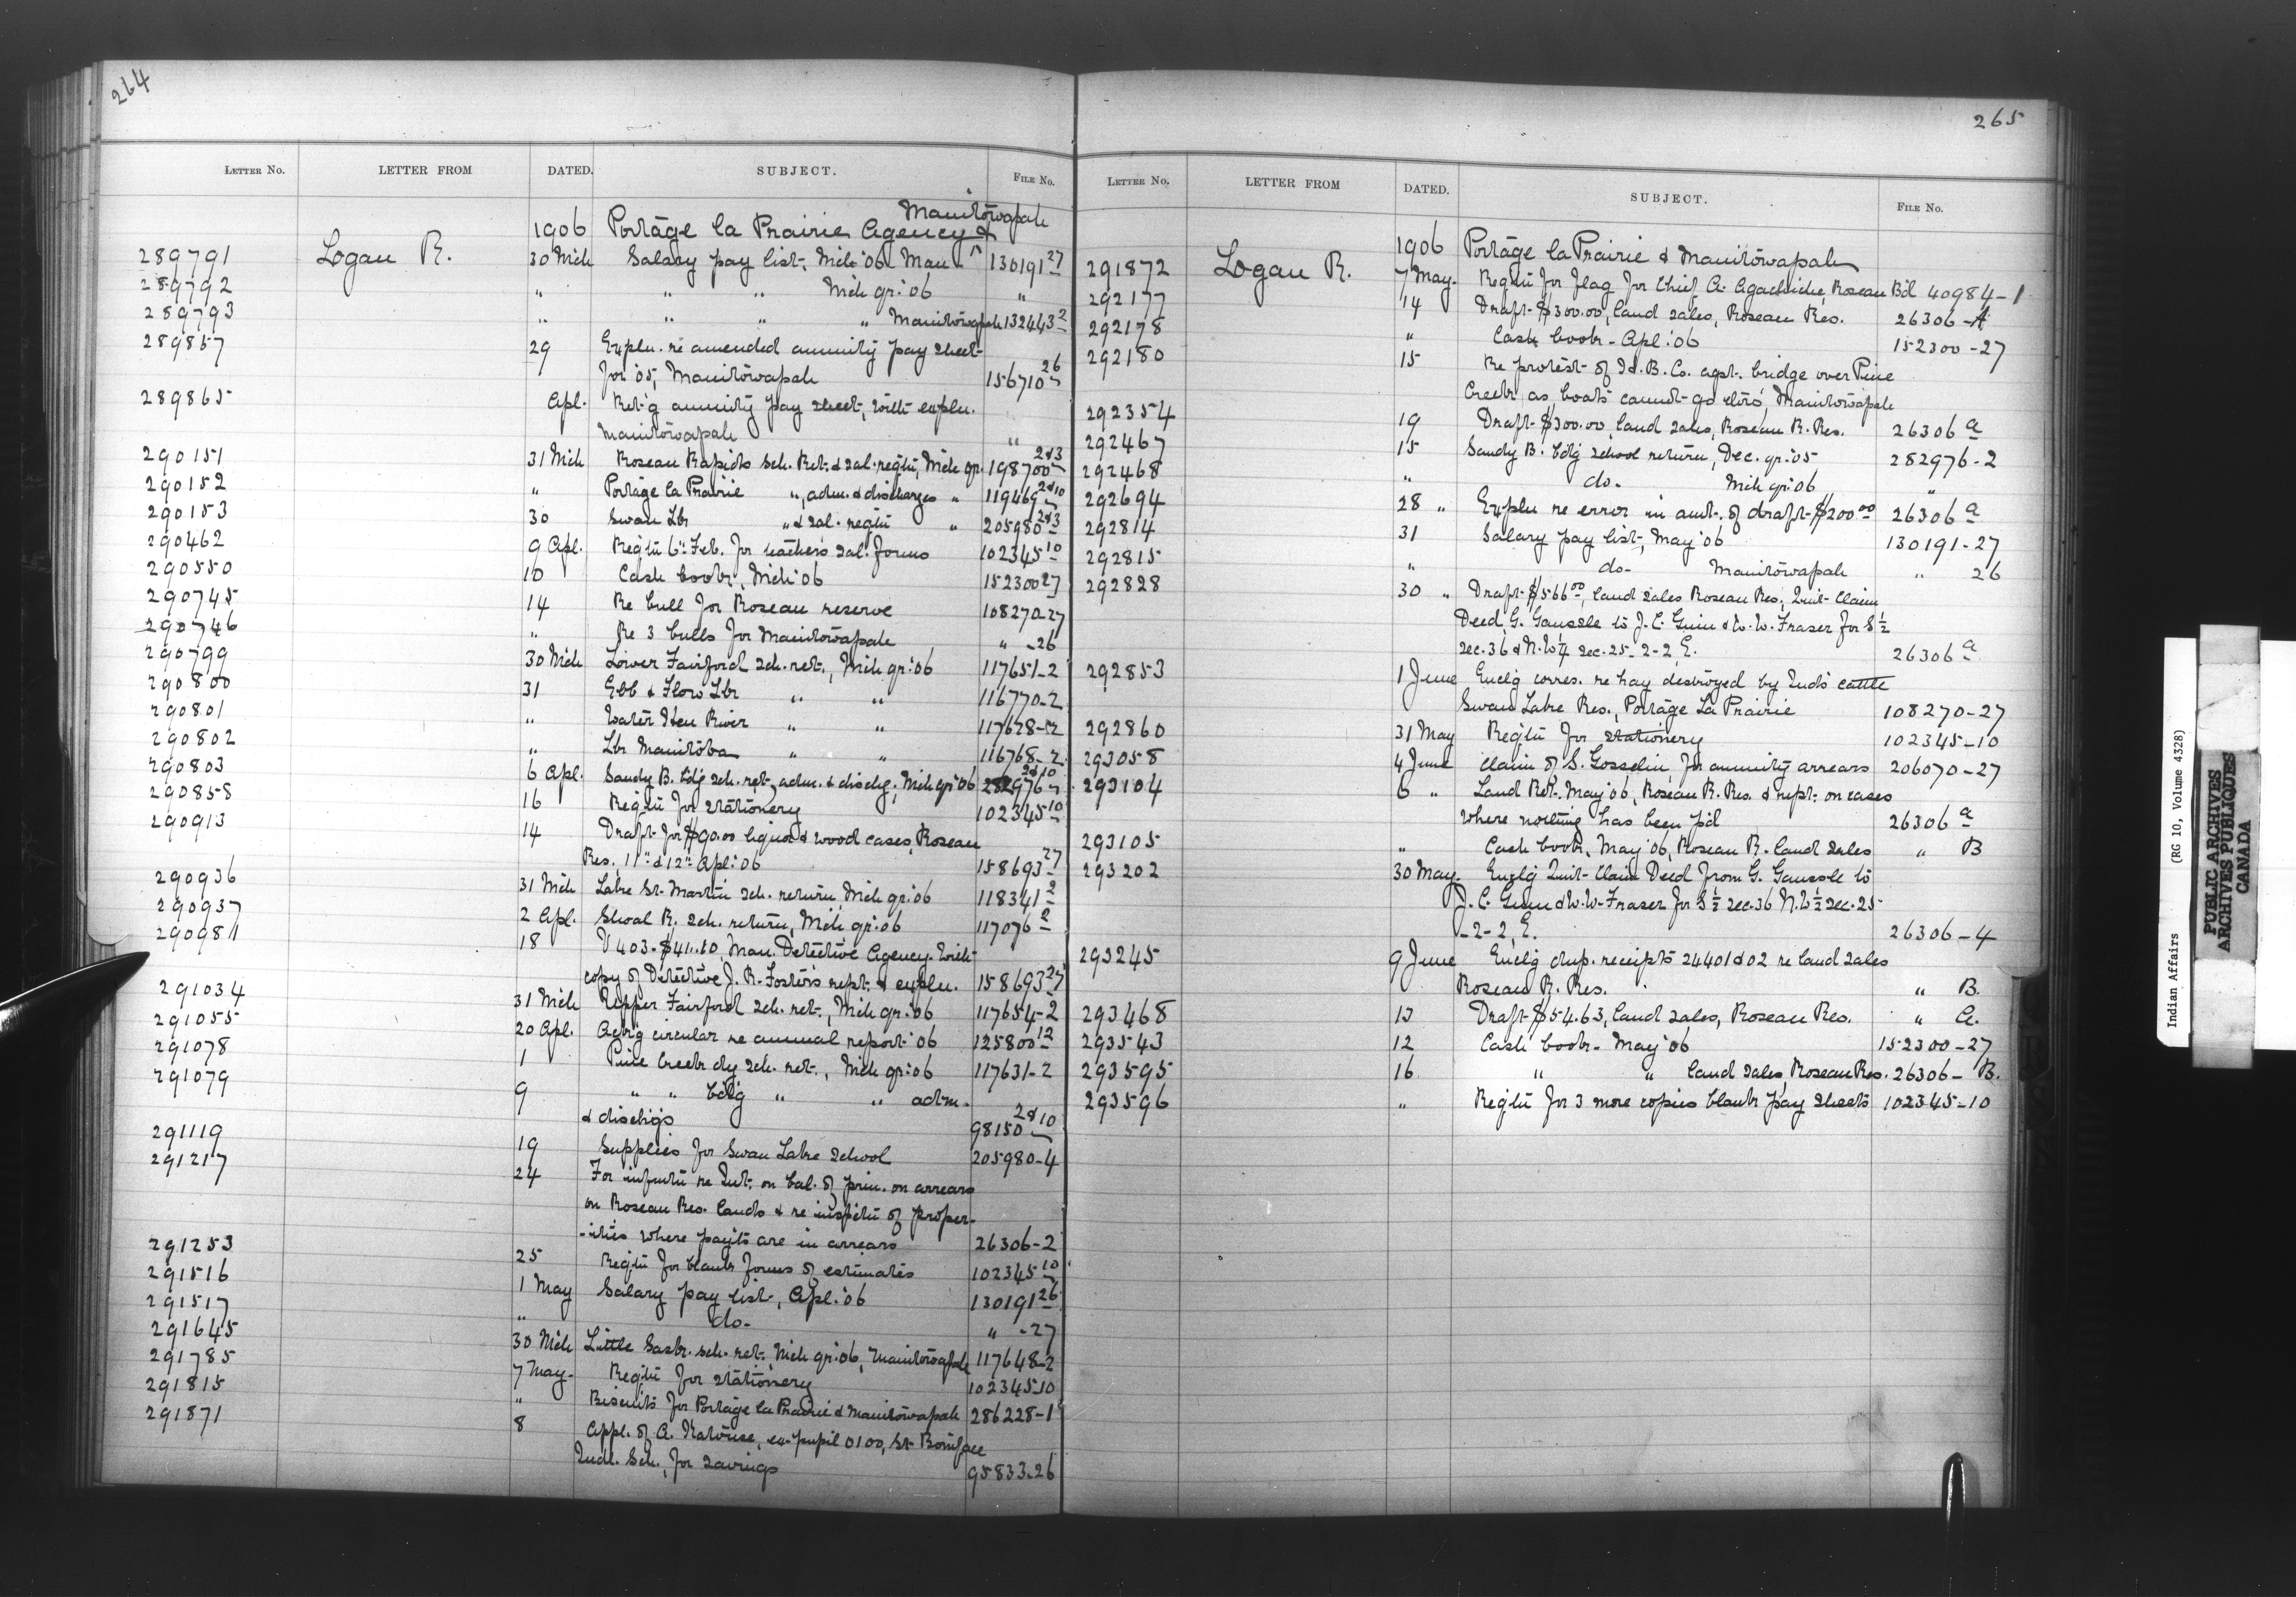 264
LETTER NO. LETTER FROM DATED. SUBJECT. FILE No.
Manitowapah
1906 Portage la Prairie Agency &
289791 Logan R. 30 Mch Salary pay list, Mch '06 Man 130191 27
289792 " " " Mch qr: 06 "
289793 " " " " Manitowapah 132443 2
289857 29 Expln. re amended annuity pay sheet
for '05, Manitowapah 156710 26
289865 Apl. Ret'g annuity pay sheet, with expln.
Manitowapah "
290151 31 Mch Roseau Rapids sch. Ret. & sal. reqtn, Mch qr. 198700 2&3
290152 " Portage la Prairie ", adm. & discharges " 119469 2&10
290153 30 Swan Lk " & sal. reqtn " 205980 2&3
290462 9 Apl. Reqtn 6th Feb. for teachers sal. forms 102345 10
290550 10 Cash book, Mch '06 152300 27
290745 14 Re bull for Roseau reserve 108270-27
290746 " Re 3 bulls for Manitowapah " -26
290799 30 Mch Lower Fairford sch. ret., Mch qr: 06 117651-2
290800 31 Ebb & Flow Lk " " 116770-2
290801 " Water Hen River " " 117628-2
290802 " Lk Manitoba " " 116768-2
290803 6 Apl. Sandy B. bdg sch. ret., adm. & dischg; Mch qr '06 282976 2&10
290858 16 Reqtn for stationery 102345 10
290913 14 Draft for $90.00 liquor & wood cases, Roseau
Res., 11th & 12th Apl: 06 158693 27
290936 31 Mch Lake St. Martin sch. return, Mch qr: 06 118341 2
290937 2 Apl. Shoal R. sch. return, Mch qr: 06 117076 2
290981 18 V 403 - $41.10, Man. Detective Agency. With
copy of Detective J. R. Foster's rept. & expln. 158693 27
291034 31 Mch Upper Fairford sch. ret., Mch qr: 06 117654-2
291055 20 Apl. Ack'g circular re annual report '06 125800 12
291078 1 Pine Creek dy sch. ret., Mch qr: 06 117631-2
291079 9 " " bdg " " adm.
& dischgs 98150 2&10
291119 19 Supplies for Swan Lake School 205980-4
291217 24 For informtn re Int. on bal. of prin. on arrears
on Roseau Res. lands & re inspctn of proper-
-ties where payts are in arrears 26306-2
291253 25 Reqtn for blank forms of estimates 102345 10
291516 1 May Salary pay list, Apl. '06 130191 26
291517 " do- " -27
291645 30 Mch Little Sask. sch. ret. Mch qr: 06, Manitowapah 117648-2
291785 7 May- Reqtn for stationery 102345-10
291815 " Biscuits for Portage la Prairie & Manitowapah 286228-1
291871 8 Appl. of A. , ex-pupil 0100, St. Boniface
Indl. Sch., for savings 95833-26
265
LETTER NO. LETTER FROM DATED. SUBJECT. FILE No.
1906 Portage la Prairie & Manitowapah
291872 Logan R. 7 May- Reqtn for flag for Chief A. , Roseau Bd 40984-1
292177 14 Draft $300.00, land sales, Roseau Res. 26306-A
292178 " Cash book - Apl: 06 152300-27
292180 15 Re protest of Id. B. Co. agst. bridge over Pine
Creek as boats cannot go thro', Manitowapah
292354 19 Draft $300.00, land sales, Roseau R. Res. 26306 a
292467 15 Sandy B. bdg school return, Dec. qr: 05 282976-2
292468 " do- Mch qr: 06 "
292694 28 " Expln re error in amt. of draft $200 00 26306 a
292814 31 Salary pay list, May '06 130191-27
292815 " do- Manitowapah " 26
292828 30 " Draft $566 00, land sales Roseau Res, Quit Claim
Deed, G. Gaussle to J. C. Guin & W. W. Fraser for S ½
sec. 36 & N.W ¼ sec. 25-2-2, E. 26306 a
292853 1 June Enclg corres. re hay destroyed by Inds cattle
Swan Lake Res., Portage La Prairie 108270-27
292860 31 May Reqtn for stationery 102345-10
293058 4 June Claim of S. Gosselin, for annuity arrears 206070-27
293104 6 " Land Ret. May '06, Roseau R. Res. & rept. on cases
where nothing has been p'd 26306 a
293105 " Cash book, May '06, Roseau R. land sales " B
293202 30 May- Enclg Quit-Claim Deed from G. Gaussle to
J. C. Guin & W. W. Fraser for S ½ sec. 36 N.W ½ sec. 25
-2-2, E. 26306-4
293245 9 June Enclg dup. receipts 24401 & 02 re land sales
Roseau R. Res. " B.
293468 13 Draft $54.63, land sales, Roseau Res. " A.
293543 12 Cash book - May '06 152300-27
293595 16 " " land sales, Roseau Res. 26306- B.
293596 " Reqtn for 3 more copies blank pay sheets 102345-10
Indian Affairs (RG 10, Volume 4328)
PUBLIC ARCHIVES
ARCHIVES PUBLIQUES
CANADA